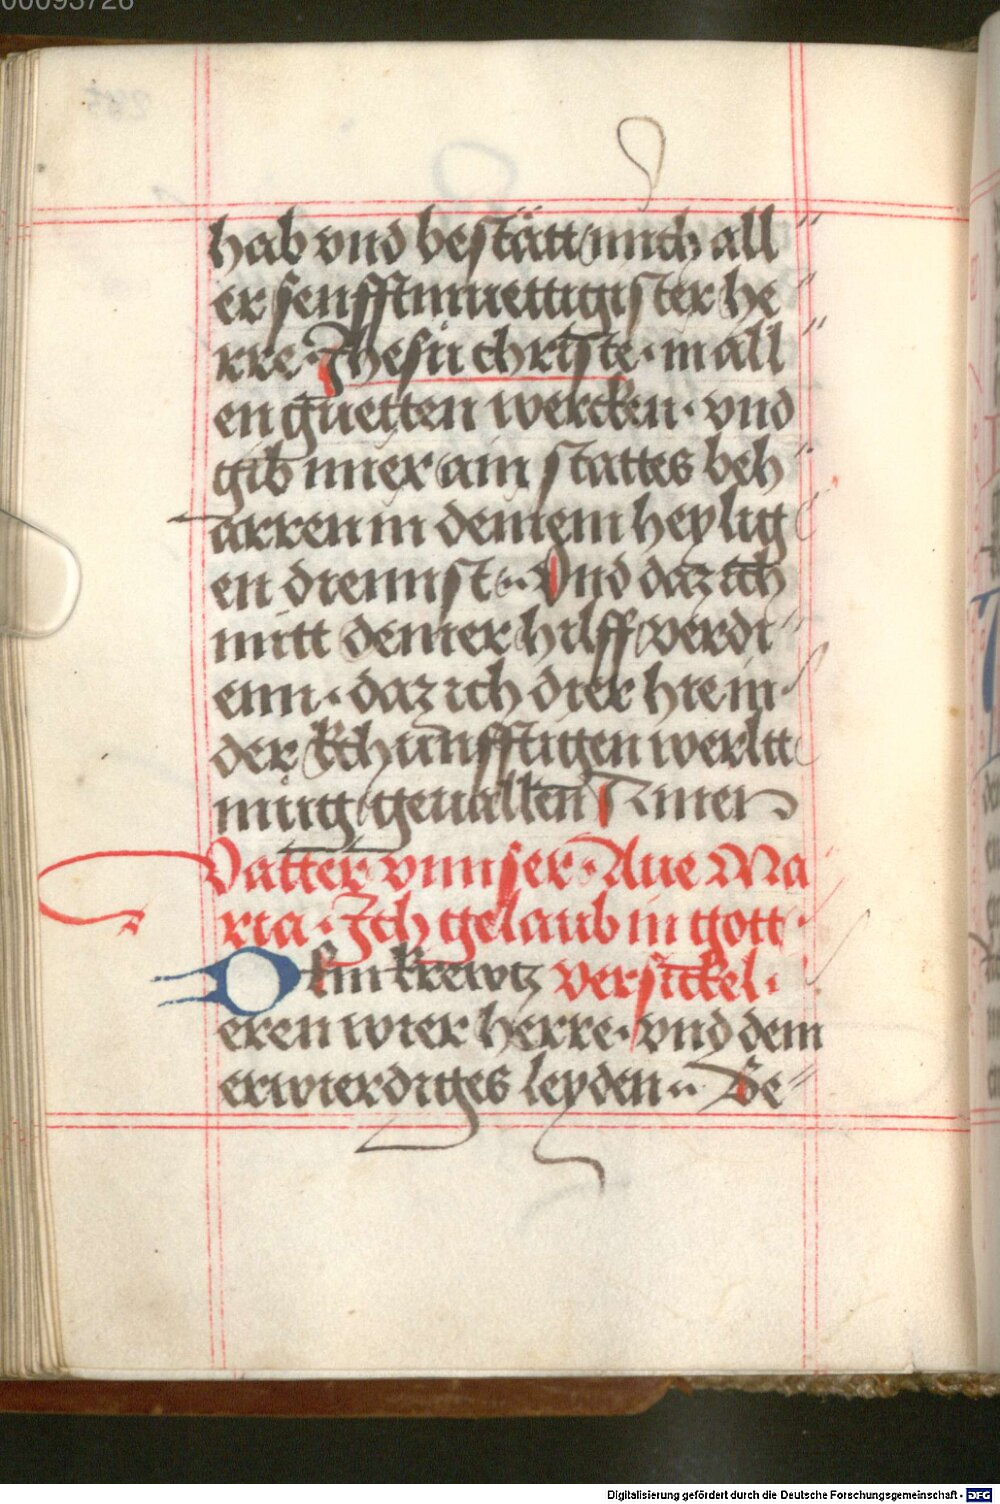 00093726
hab vnd bestätt mich all
er senfftmuettigister he
rre · Jhesu christe · in all
en guetten wercken · vnd
gib mier ain stattes beh
arren in deinem heylig
en diennst ·· Vnd daz ich
mitt deiner hilff verdi
enn · daz ich dier hie in ·
der kchunfftigen werltt
mug geuallen Amen
Vatter vnnser · Aue Ma
ria · Jch gelaub in gott ·
Dein krewtz versickel ·
eren wier herre · vnd dem
erwierdiges leyden ·· Be
Digitalisierung gefördert durch die Deutsche Forschungsgemeinschaft - DFG